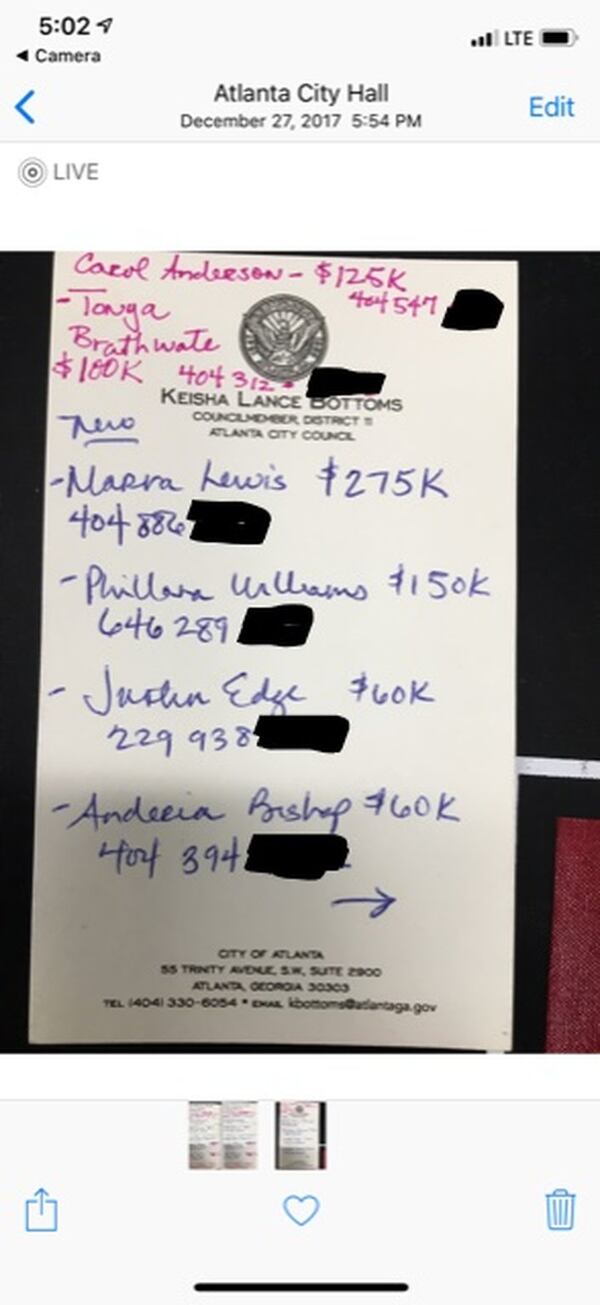 5:02
LTE
Camera
Atlanta City Hall
December 27, 2017 5:54 PM
Edit
LIVE
Carol Anderson - $125K
404 547
- Tonya
Brathwate
$100K 404 312
KEISHA LANCE BOTTOMS
COUNCILMEMBER, DISTRICT 11
ATLANTA CITY COUNCIL
New
- Marva Lewis $275K
404 886
- Phillana Williams $150K
646 289
- Justin Edge $60K
229 938
- Andreia Bishop $60K
404 394
CITY OF ATLANTA
55 TRINITY AVENUE, S.W., SUITE 2900
ATLANTA, GEORGIA 30303
TEL (404) 330-6054 • EMAIL kbottoms@atlantaga.gov